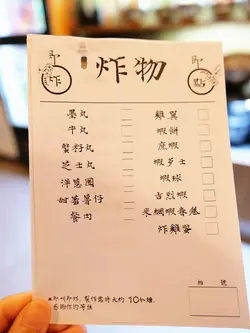 即炸
炸物
即點
墨丸
雞翼
牛丸
蝦餅
蟹籽丸
芝士丸
蝦多士
洋葱圈
蝦球
甘薯薯仔
吉烈蝦
餐肉
米網蝦春卷
炸雞髀
枱號
即叫即炸, 製作需時大約10分鐘.
感謝你的等候